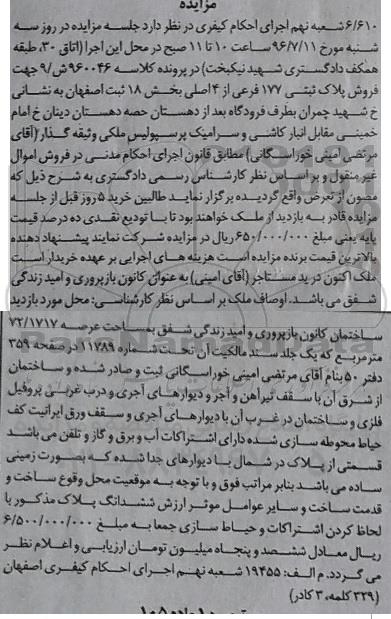 مزایده
۶/۶۱۰ شعبه نهم اجرای احکام کیفری در نظر دارد جلسه مزایده در روز سه
شنبه مورخ ۹۶/۷/۱۱ ساعت ۱۰ تا ۱۱ صبح در محل این اجرا (اتاق ۳۰، طبقه
همکف دادگستری شهید نیکبخت) در پرونده کلاسه ۹۶۰۰۴۶ ش/۹ جهت
فروش پلاک ثبتی ۱۷۷ فرعی از ۴ اصلی بخش ۱۸ ثبت اصفهان به نشانی
خ شهید چمران بطرف فرودگاه بعد از دهستان حصه دهستان دینان خ امام
خمینی مقابل انبار کاشی و سرامیک پرسپولیس ملکی وثیقه گذار (آقای
مرتضی امینی خوراسگانی) مطابق قانون اجرای احکام مدنی در فروش اموال
غیر منقول و بر اساس نظر کارشناس رسمی دادگستری به شرح ذیل که
مصون از تعرض واقع گردیده برگزار نماید طالبین خرید ۵ روز قبل از جلسه
مزایده قادر به بازدید از ملک خواهند بود تا با تودیع نقدی ده درصد قیمت
پایه یعنی مبلغ ۶۵۰/۰۰۰/۰۰۰ ریال در مزایده شرکت نمایند پیشنهاد دهنده
بالاترین قیمت برنده مزایده است هزینه های اجرایی بر عهده خریدار است
ملک اکنون در ید مستاجر (آقای امینی) به عنوان کانون بازپروری و امید زندگی
شفق می باشد. اوصاف ملک بر اساس نظر کارشناسی: محل مورد بازدید
ساختمان کانون بازپروری و امید زندگی شفق بمساحت عرصه ۷۲/۱۷۱۷
مترمربع که یک جلد سند مالکیت آن تحت شماره ۱۱۲۸۹ در صفحه ۳۵۹
دفتر ۵۰ بنام آقای مرتضی امینی خوراسگانی ثبت و صادر شده و ساختمان
از شرق آن با سقف تیرآهن و آجر و دیوارهای آجری و درب غربی پروفیل
فلزی و ساختمان در غرب آن با دیوارهای آجری و سقف ورق ایرانیت کف
حیاط محوطه سازی شده دارای اشتراکات آب و برق و گاز و تلفن می باشد
قسمتی از پلاک در شمال با دیوارهای جدا شده که بصورت زمینی
ساده می باشد بنابر مراتب فوق و با توجه به موقعیت محل وقوع ساخت و
قدمت ساخت و سایر عوامل موثر ارزش ششدانگ پلاک مذکور با
لحاظ کردن اشتراکات و حیاط سازی جمعا به مبلغ ۶/۵۰۰/۰۰۰/۰۰۰
ریال معادل ششصد و پنجاه میلیون تومان ارزیابی و اعلام نظر
می گردد. م الف: ۱۹۴۵۵ شعبه نهم اجرای احکام کیفری اصفهان
(۳۲۹ کلمه، ۳ کادر)